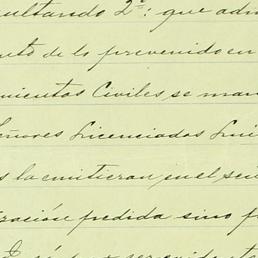 sultando 2º: que adm
nto de lo prevenido en
mientos Civiles se man
eñores Licenciados Luis
s la emitieran en el señ
ración pedida sino f